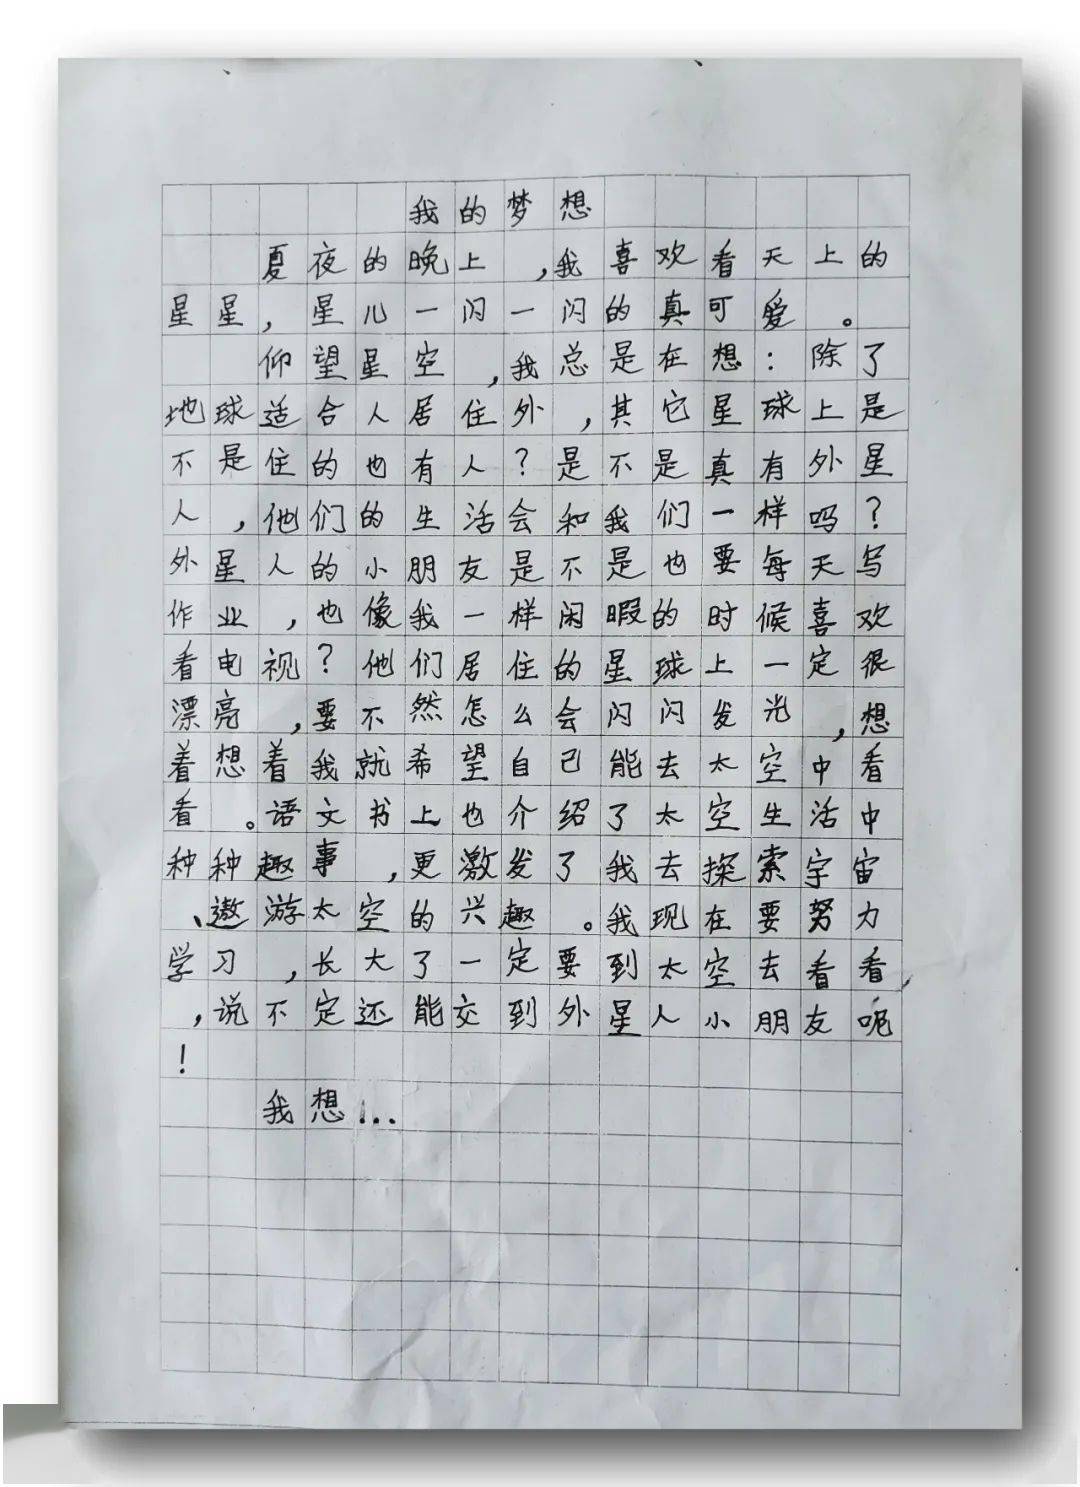 我的梦想
夏夜的晚上,我喜欢看天上的
星星,星儿一闪一闪的真可爱。
仰望星空,我总是在想:除了
地球适合人居住外,其它星球上是
不是住的也有人?是不是真有外星
人,他们的生活会和我们一样吗?
外星人的小朋友是不是也要每天写
作业,也像我一样闲暇的时候喜欢
看电视?他们居住的星球上一定很
漂亮,要不然怎么会闪闪发光,想
着想着我就希望自己能去太空中看
看。语文书上也介绍了太空生活中
种种趣事,更激发了我去探索宇宙
、遨游太空的兴趣。我现在要努力
学习,长大了一定要到太空去看看
,说不定还能交到外星人小朋友呢
!
我想!...